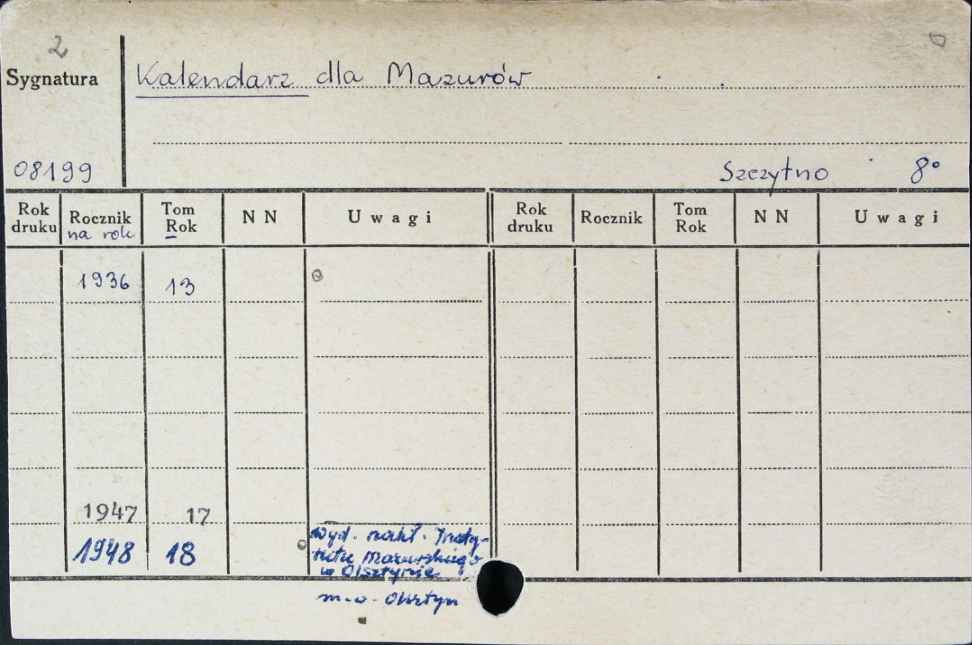 2
Sygnatura
Kalendarz dla Mazurów
08199
Szczytno 8°
Rok druku Rocznik na rok Tom Rok N N Uwagi Rok druku Rocznik Tom Rok N N Uwagi
1936 13
1947 17
1948 18
Wyd. nakł. Insty-
tutu Mazurskiego
w Olsztynie
m. w. Olsztyn